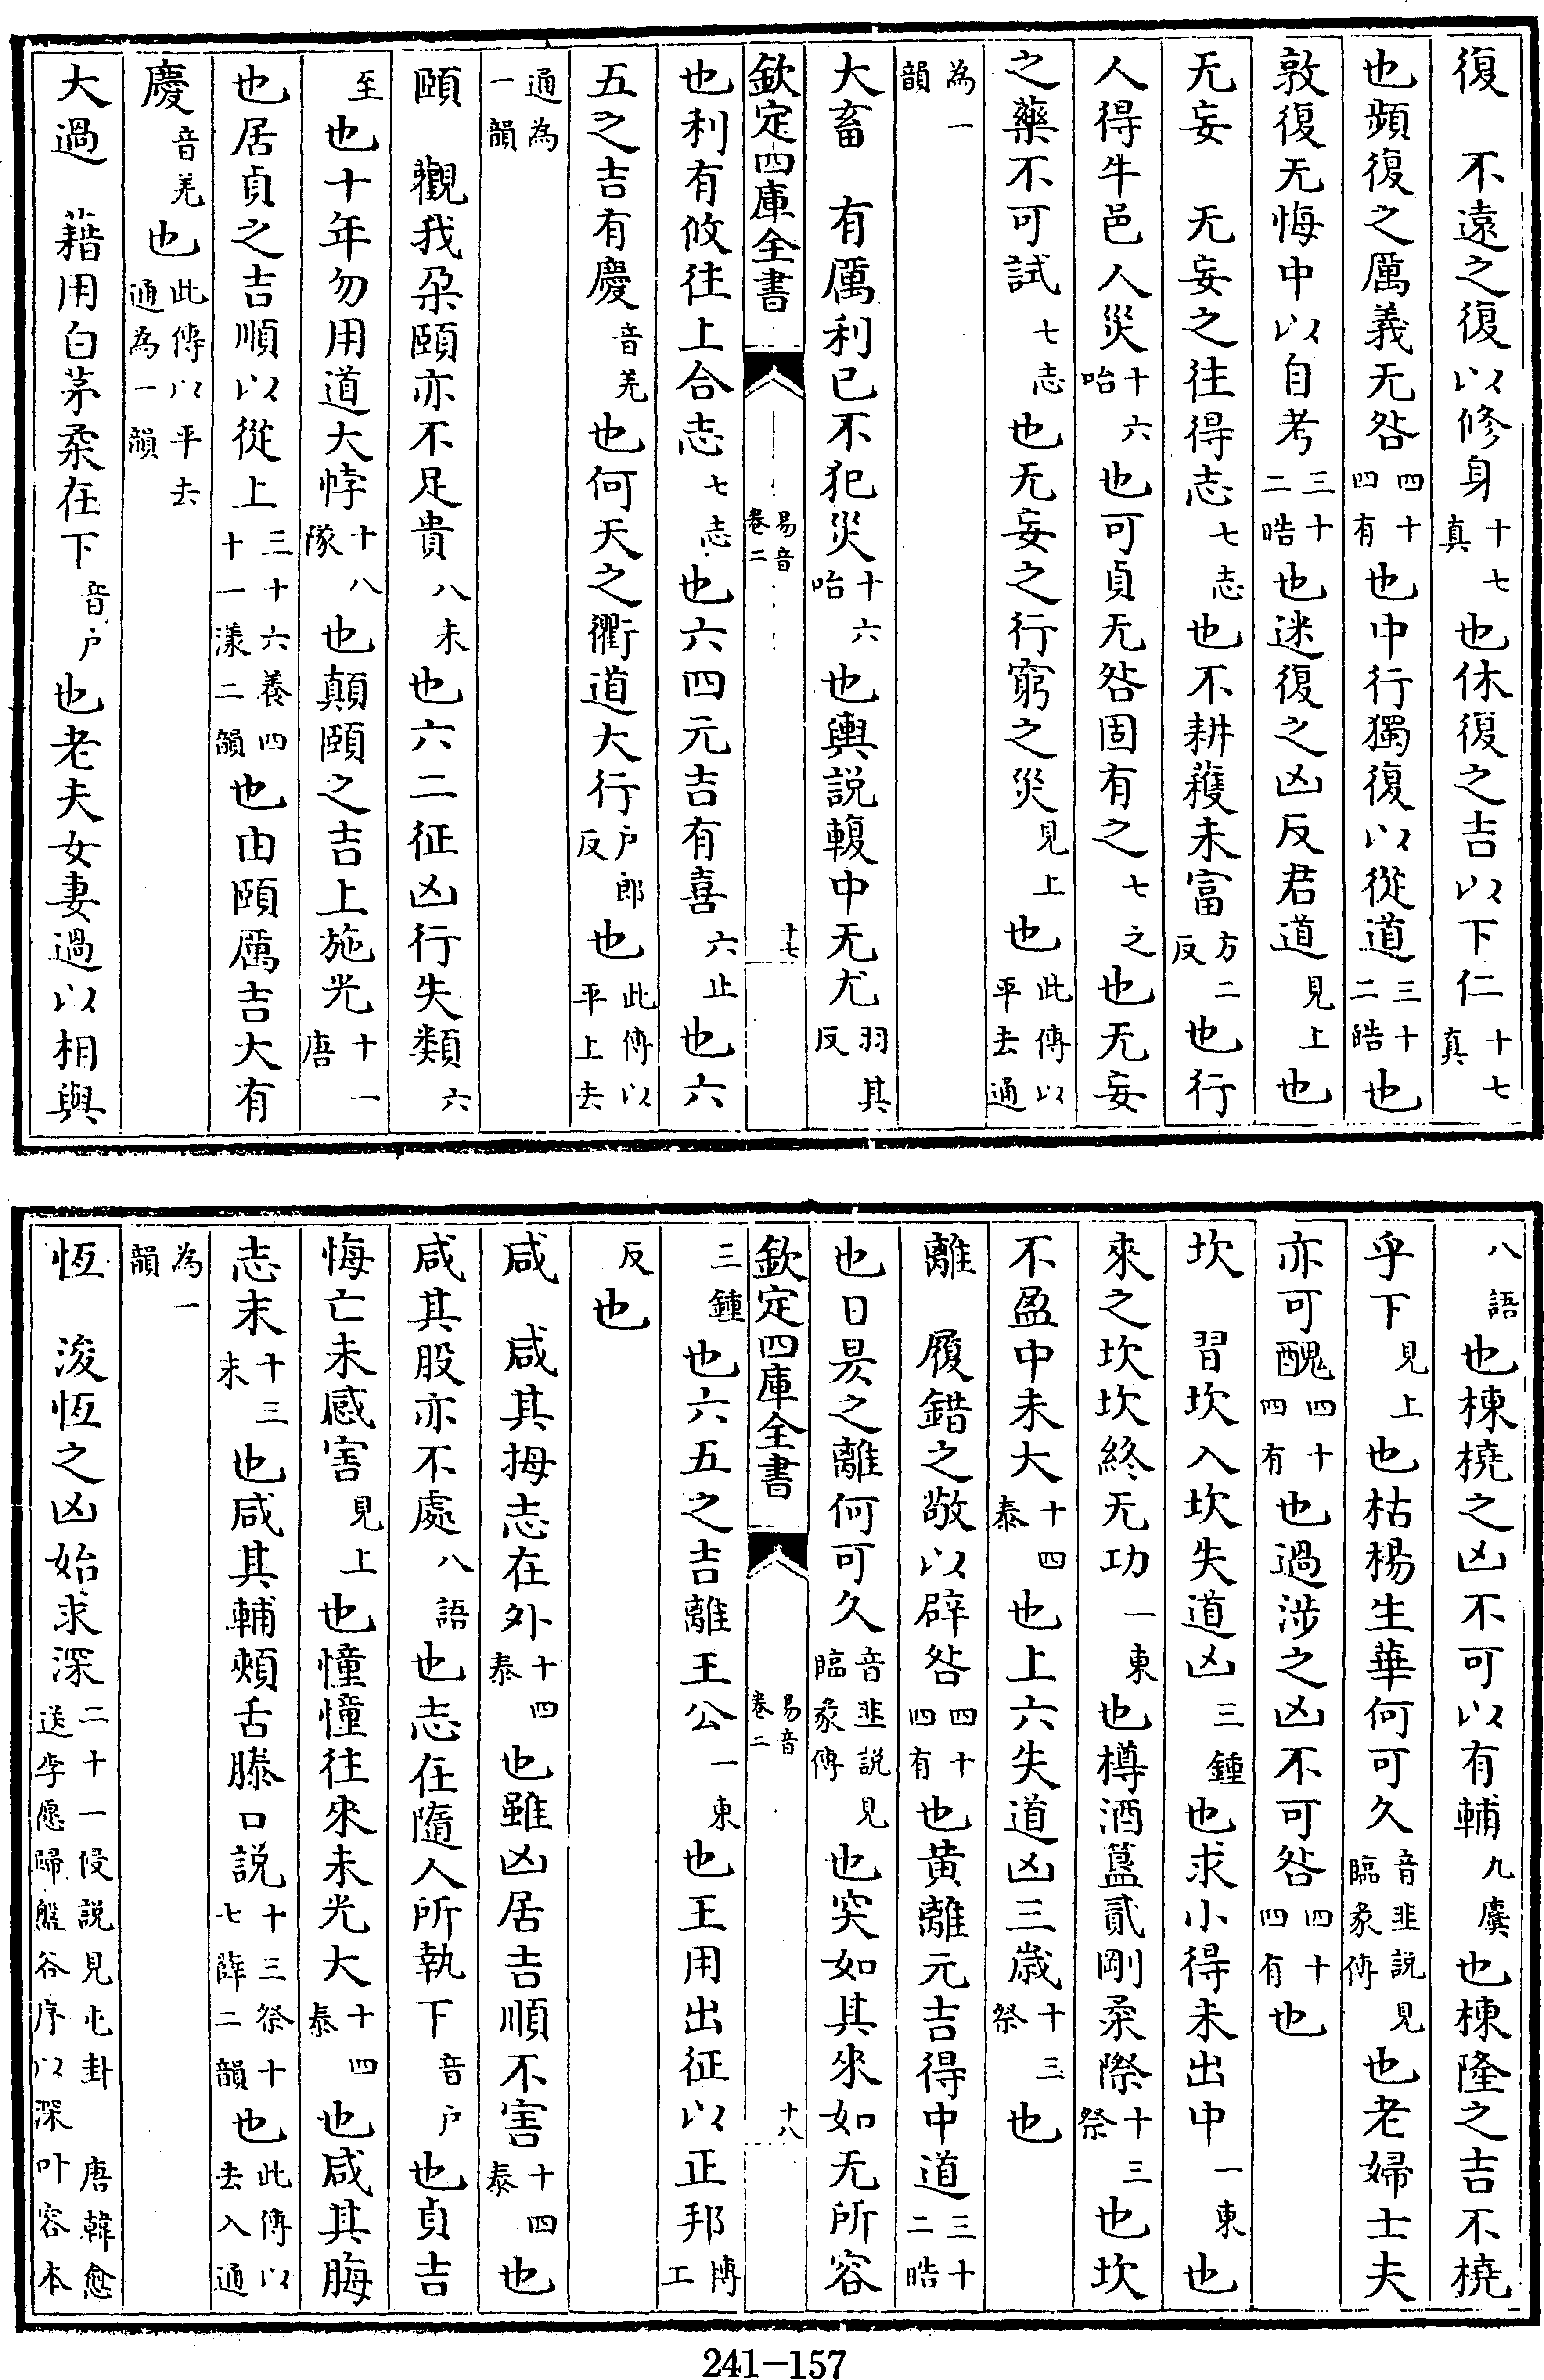 復　不遠之復以修身十七真也休復之吉以下仁十七真
也頻復之厲義无咎四十四有也中行獨復以從道三十二皓也
敦復无悔中以自考三十二皓也迷復之凶反君道見上也
无妄　无妄之往得志七志也不耕穫未富方二反也行
人得牛邑人災十六咍也可貞无咎固有之七之也无妄
之藥不可試七志也无妄之行窮之災見上也此傳以平去通
為一韻
大畜　有厲利已不犯災十六咍也輿説輹中无尤羽其反
欽定四庫全書　易音卷二　十七
也利有攸往上合志七志也六四元吉有喜六止也六
五之吉有慶音羌也何天之衢道大行户郎反也此傳以平上去
通為一韻
頤　觀我朶頤亦不足貴八未也六二征凶行失類六
至也十年勿用道大悖十八隊也顛頤之吉上施光十一唐
也居貞之吉順以從上三十六養四十一漾二韻也由頤厲吉大有
慶音羌也此傳以平去通為一韻
大過　藉用白茅柔在下音户也老夫女妻過以相與
八語也棟橈之凶不可以有輔九麌也棟隆之吉不橈
乎下見上也枯楊生華何可久音韭説見臨彖傳也老婦士夫
亦可醜四十四有也過涉之凶不可咎四十四有也
坎　習坎入坎失道凶三鍾也求小得未出中一東也
來之坎坎終无功一東也樽酒簋貳剛柔際十三祭也坎
不盈中未大十四泰也上六失道凶三歳十三祭也
離　履錯之敬以辟咎四十四有也黄離元吉得中道三十二皓
也日昃之離何可久音韭説見臨彖傳也突如其來如无所容
欽定四庫全書　易音卷二　十八
三鍾也六五之吉離王公一東也王用出征以正邦博工
反也
咸　咸其拇志在外十四泰也雖凶居吉順不害十四泰也
咸其股亦不處八語也志在隨人所執下音户也貞吉
悔亡未感害見上也憧憧往來未光大十四泰也咸其脢
志末十三末也咸其輔頰舌滕口説十三祭十七薛二韻也此傳以去入通
為一韻
恆　浚恆之凶始求深二十一侵説見屯卦　唐韓愈送李愿歸盤谷序以深叶容本
241-157